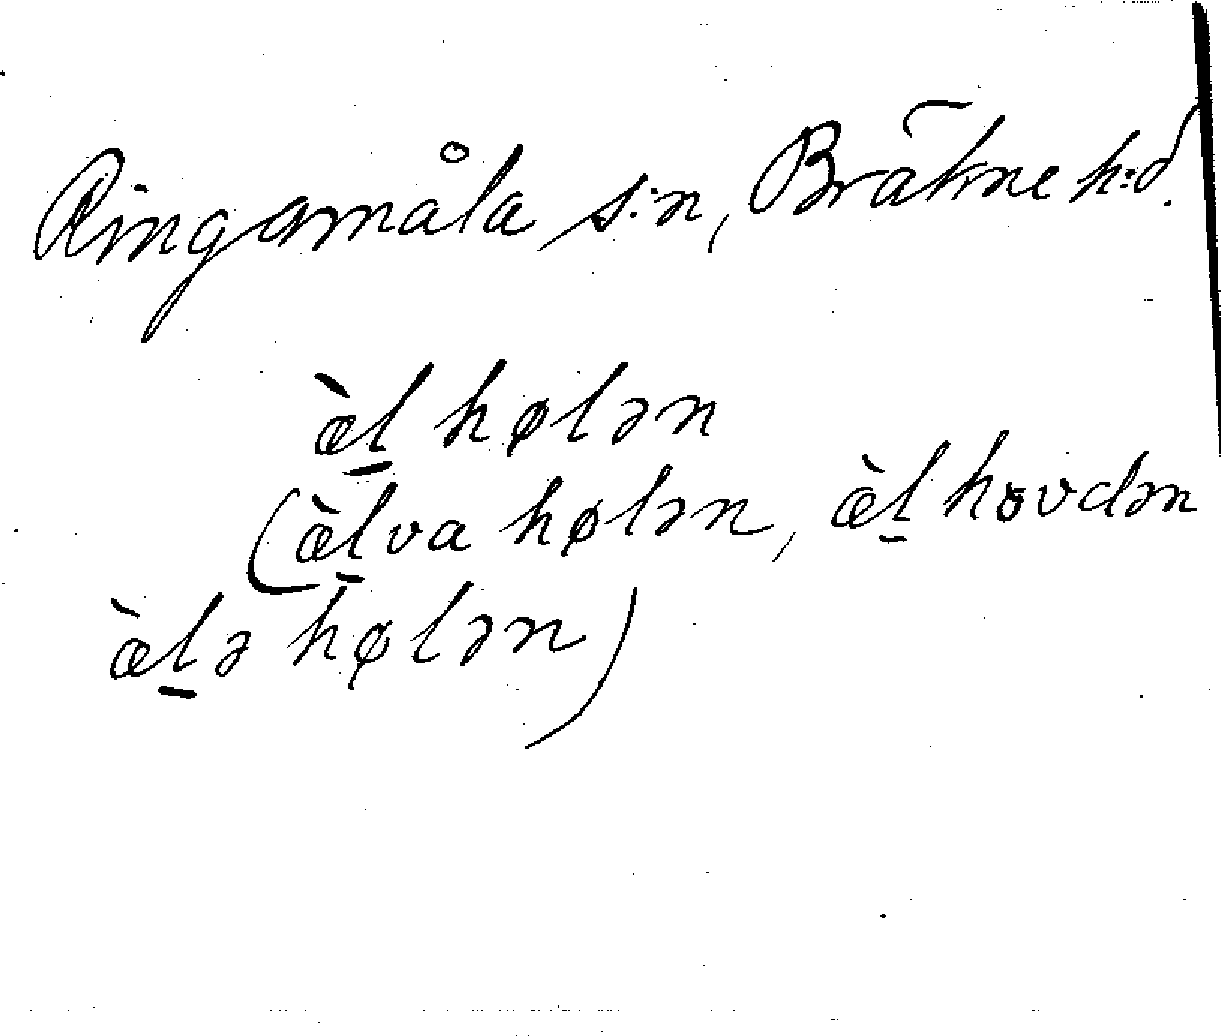 Ringamåla s:n, Bräkne h:d.
æ̀l̲ hølən
(æ̀l̲va hølən, æ̀l̲ hɵvdən
æ̀l̲ə hølən)